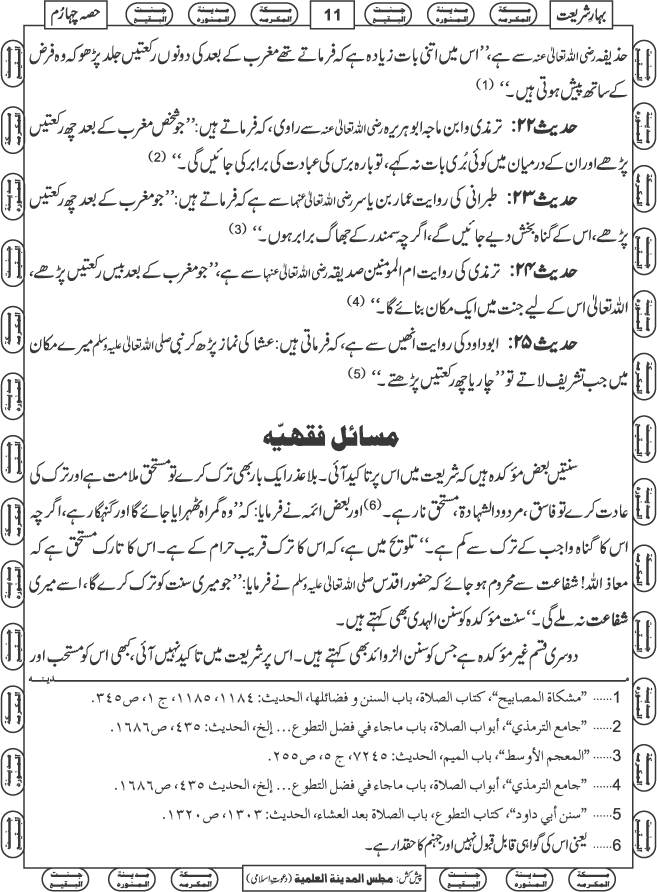 بہارِ شریعت
جنت البقیع
مدینۃ المنورہ
مکۃ المکرمہ
11
جنت البقیع
مدینۃ المنورہ
مکۃ المکرمہ
حصہ چہارم
حذیفہ رضی اللہ تعالیٰ عنہ سے ہے، ’’اس میں اتنی بات زیادہ ہے کہ فرماتے تھے مغرب کے بعد کی دونوں رکعتیں جلد پڑھو کہ وہ فرض
کے ساتھ پیش ہوتی ہیں۔‘‘ (1)
حدیث ۲۲: ترمذی و ابن ماجہ ابوہریرہ رضی اللہ تعالیٰ عنہ سے راوی، کہ فرماتے ہیں: ’’جو شخص مغرب کے بعد چھ رکعتیں
پڑھے اور ان کے درمیان میں کوئی بُری بات نہ کہے، تو بارہ برس کی عبادت کی برابر کی جائیں گی۔‘‘ (2)
حدیث ۲۳: طبرانی کی روایت عمار بن یاسر رضی اللہ تعالیٰ عنہما سے ہے کہ فرماتے ہیں: ’’جو مغرب کے بعد چھ رکعتیں
پڑھے، اس کے گناہ بخش دیے جائیں گے، اگرچہ سمندر کے جھاگ برابر ہوں۔‘‘ (3)
حدیث ۲۴: ترمذی کی روایت ام المومنین صدیقہ رضی اللہ تعالیٰ عنہا سے ہے، ’’جو مغرب کے بعد بیس رکعتیں پڑھے،
اللہ تعالیٰ اس کے لیے جنت میں ایک مکان بنائے گا۔‘‘ (4)
حدیث ۲۵: ابوداود کی روایت انھیں سے ہے، کہ فرماتی ہیں: عشا کی نماز پڑھ کر نبی صلی اللہ تعالیٰ علیہ وسلم میرے مکان
میں جب تشریف لاتے تو ’’چار یا چھ رکعتیں پڑھتے۔‘‘ (5)
مسائل فقهیّه
سنتیں بعض مؤکدہ ہیں کہ شریعت میں اس پر تاکید آئی۔ بلا عذر ایک بار بھی ترک کرے تو مستحق ملامت ہے اور ترک کی
عادت کرے تو فاسق، مردود الشہادۃ، مستحق نار ہے۔(6) اور بعض ائمہ نے فرمایا: کہ ’’وہ گمراہ ٹھہرایا جائے گا اور گنہگار ہے، اگرچہ
اس کا گناہ واجب کے ترک سے کم ہے۔‘‘ تلویح میں ہے، کہ اس کا ترک قریب حرام کے ہے۔ اس کا تارک مستحق ہے کہ
معاذ اللہ! شفاعت سے محروم ہو جائے کہ حضور اقدس صلی اللہ تعالیٰ علیہ وسلم نے فرمایا: ’’جو میری سنت کو ترک کرے گا، اسے میری
شفاعت نہ ملے گی۔‘‘ سنت مؤکدہ کو سنن الہدیٰ بھی کہتے ہیں۔
دوسری قسم غیر مؤکدہ ہے جس کو سنن الزوائد بھی کہتے ہیں۔ اس پر شریعت میں تاکید نہیں آئی، کبھی اس کو مستحب اور
مدینہ
1...... ”مشكاة المصابيح“، كتاب الصلاة، باب السنن و فضائلها، الحديث: ١١٨٤، ١١٨٥، ج١، ص٣٤٥.
2...... ”جامع الترمذي“، أبواب الصلاة، باب ماجاء في فضل التطوع... إلخ، الحديث: ٤٣٥، ص١٦٨٦.
3...... ”المعجم الأوسط“، باب الميم، الحديث: ٧٢٤٥، ج٥، ص٢٥٥.
4...... ”جامع الترمذي“، أبواب الصلاة، باب ماجاء في فضل التطوع... إلخ، الحديث ٤٣٥، ص١٦٨٦.
5...... ”سنن أبي داود“، كتاب التطوع، باب الصلاة بعد العشاء، الحديث: ١٣٠٣، ص١٣٢٠.
6...... یعنی اس کی گواہی قابل قبول نہیں اور جہنم کا حقدار ہے۔
پیش کش: مجلس المدینة العلمیة (دعوتِ اسلامی)